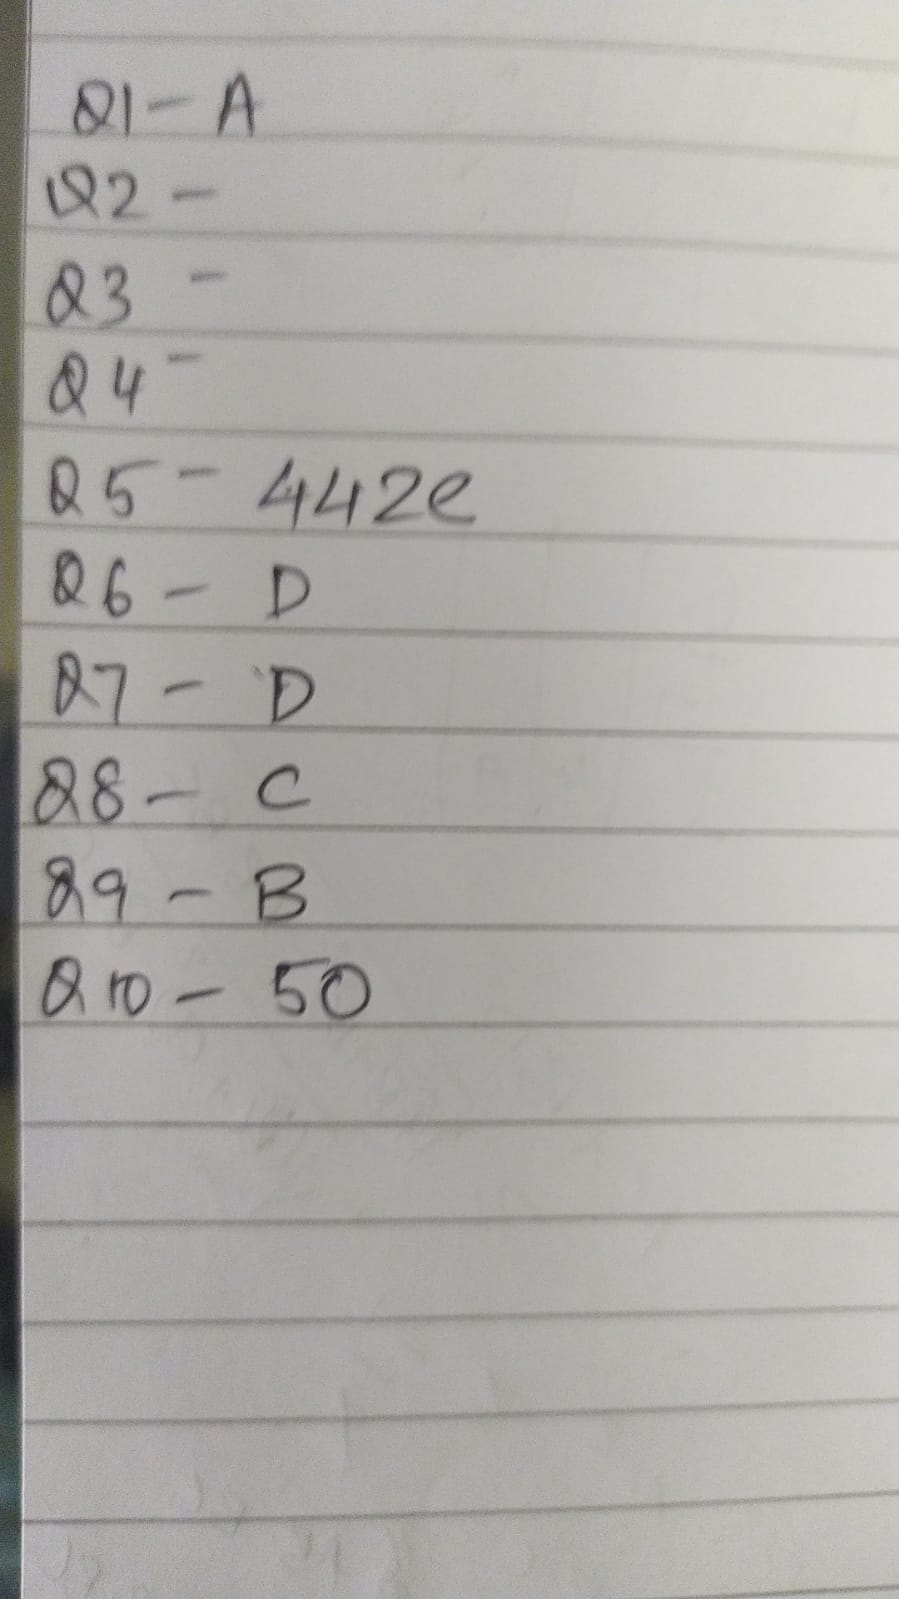 Q1 - A
Q2 -
Q3 -
Q4 -
Q5 - 442e
Q6 - D
Q7 - D
Q8 - C
Q9 - B
Q10 - 50